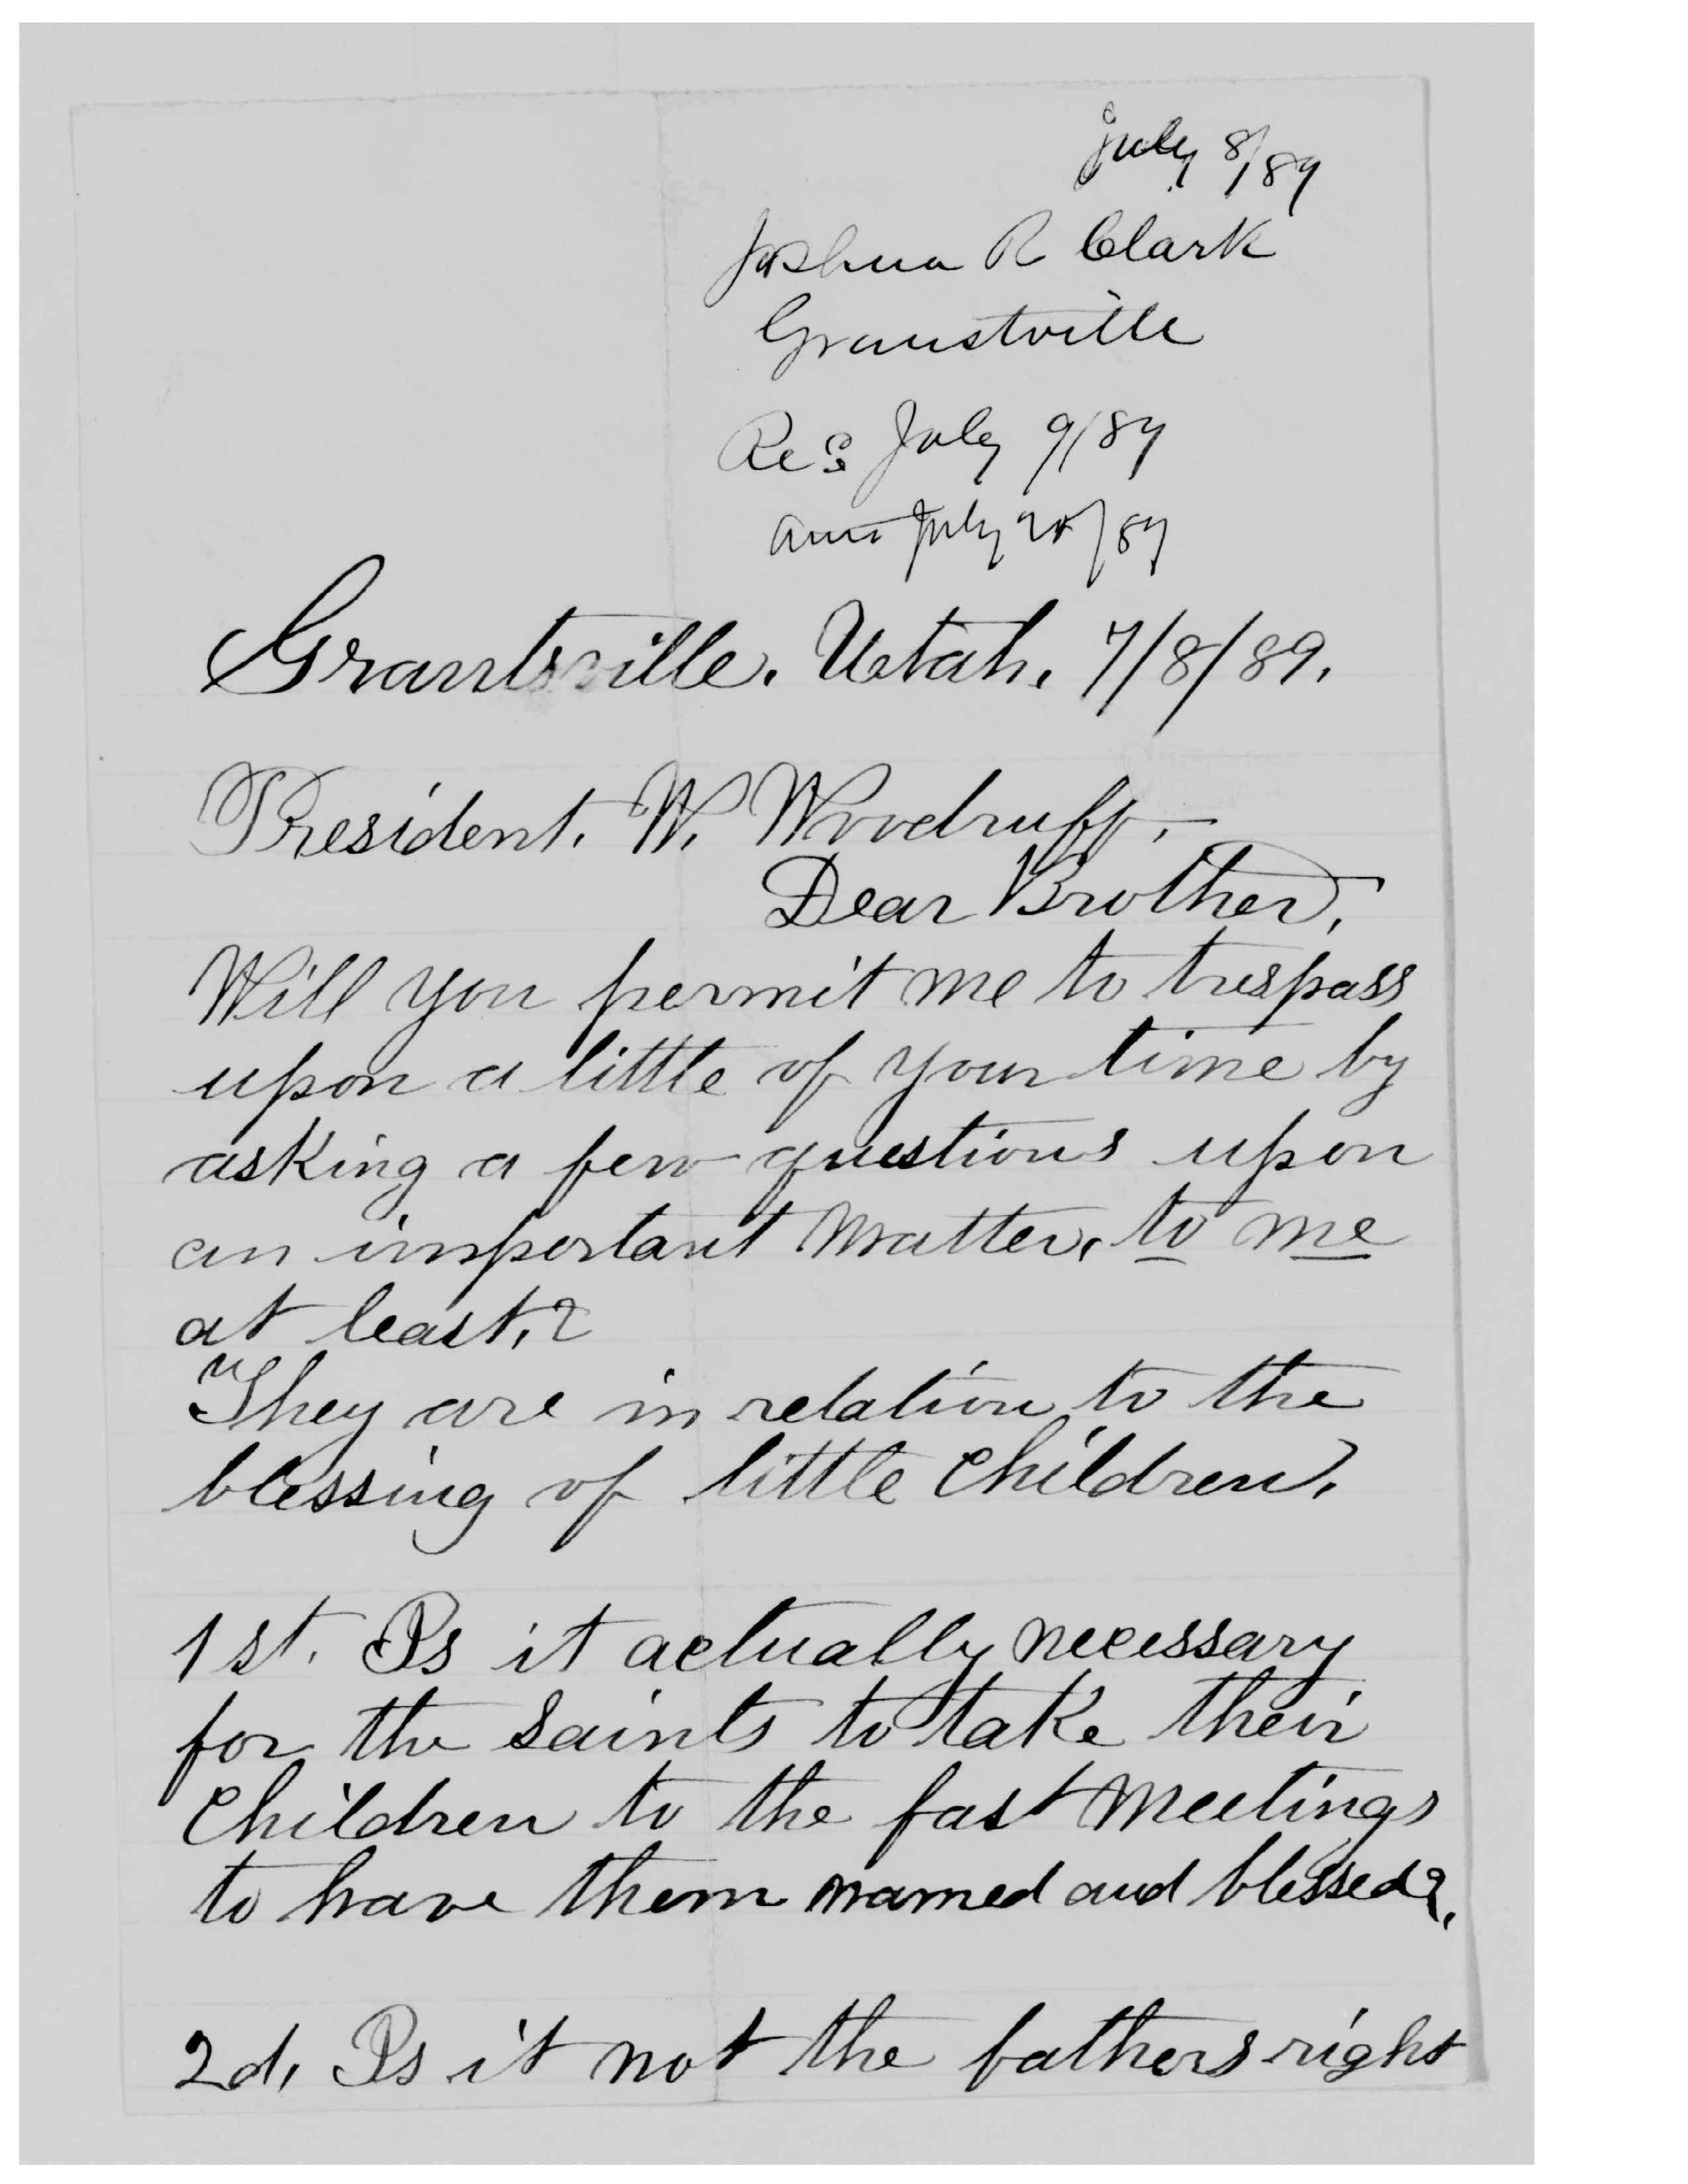 July 8/89
Joshua R Clark
Grantsville
Rec July 9/89
July /89
Grantsville. Utah. 7/8/89.
President. W. Woodruff,
Dear Brother,
Will you permit me to trespass
upon a little of your time by
asking a few questions upon
an important matter, to me
at least,?
They are in relation to the
blessing of little children,
1st. Is it actually necessary
for the Saints to take their
children to the fast meetings
to have them named and blessed?,
2d, Is it not the fathers right